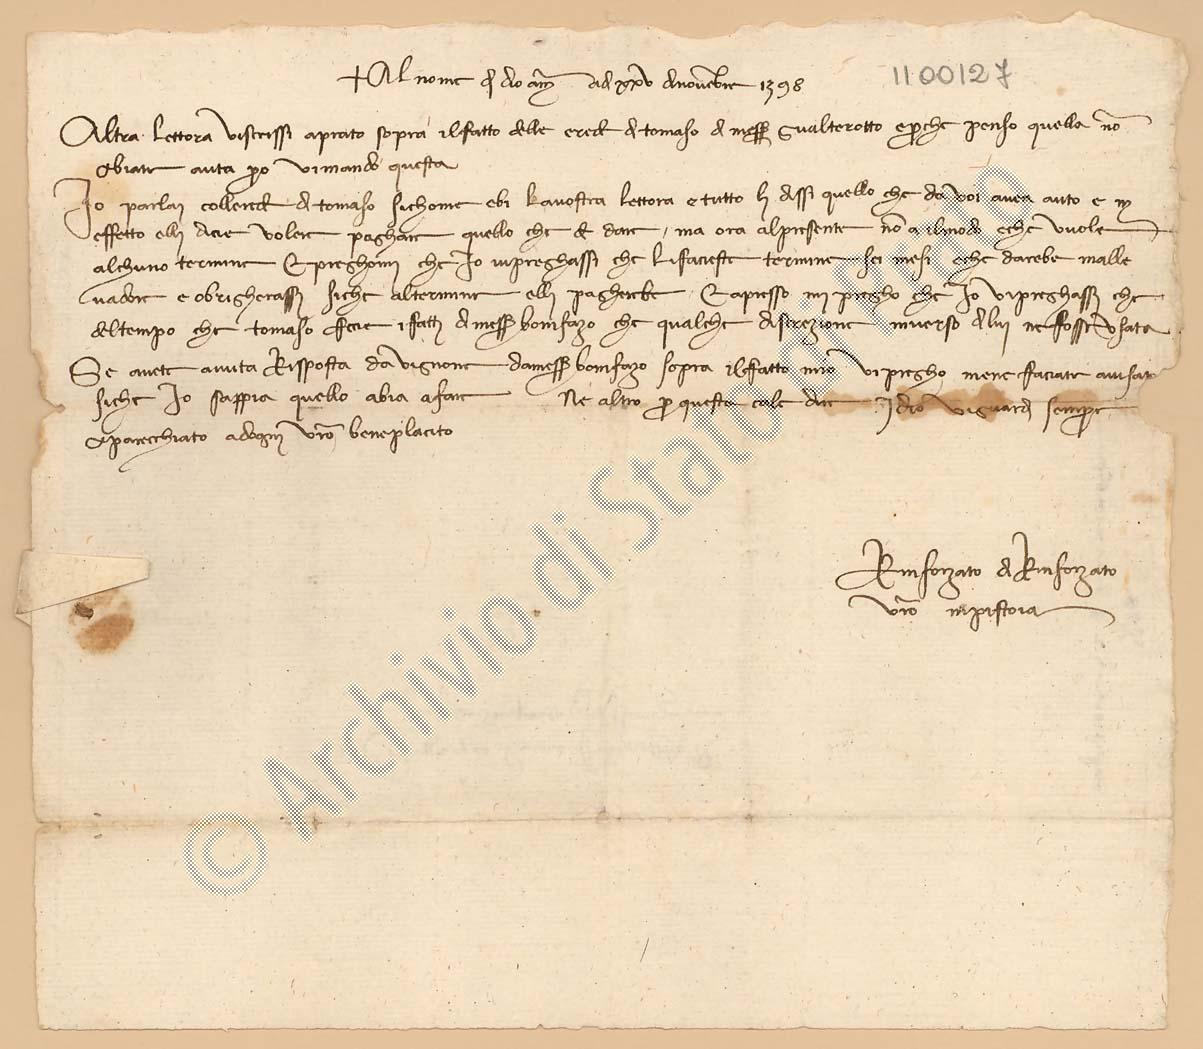 + Al nome di dio am̄ adi xxv di novēbre 1398
1100127
Altra lettora viscrissi a prato sopra il fatto delle erede di tomaso di mess gualterotto e perche penso quella nō
abiate auta po vi mando questa
Io parlai coll erede di tomaso sichome ebi la vostra lettora e tutto li dissi quello che da voi avea auto e in
effetto elli dicie volere paghare quello che de dare, ma ora al presente nō a il modo e che vuole
alchuno termine e preghomi che Io vi preghassi che li facieste termine sei mesi e che darebe malle
vadore e obrigherassi siche al termine elli pagherebe E apresso mi pregho che Io vi preghassi che
del tempo che tomaso fecie i fatti di mess bonifazo che qualche discrezione inverso di lui ne fosse usata
Se avete avuta Risposta da vignone da mess bonifazo sopra il fatto mio vi pregho me ne facciate avisato
siche Io sappia quello abia a fare Ne altro p questa cale dire Idio vi guardi sempre
Aparecchiato a dogni vrō beneplacito
Rinforzato di Rinforzato
vrō in pistoia
© Archivio di Stato di Prato